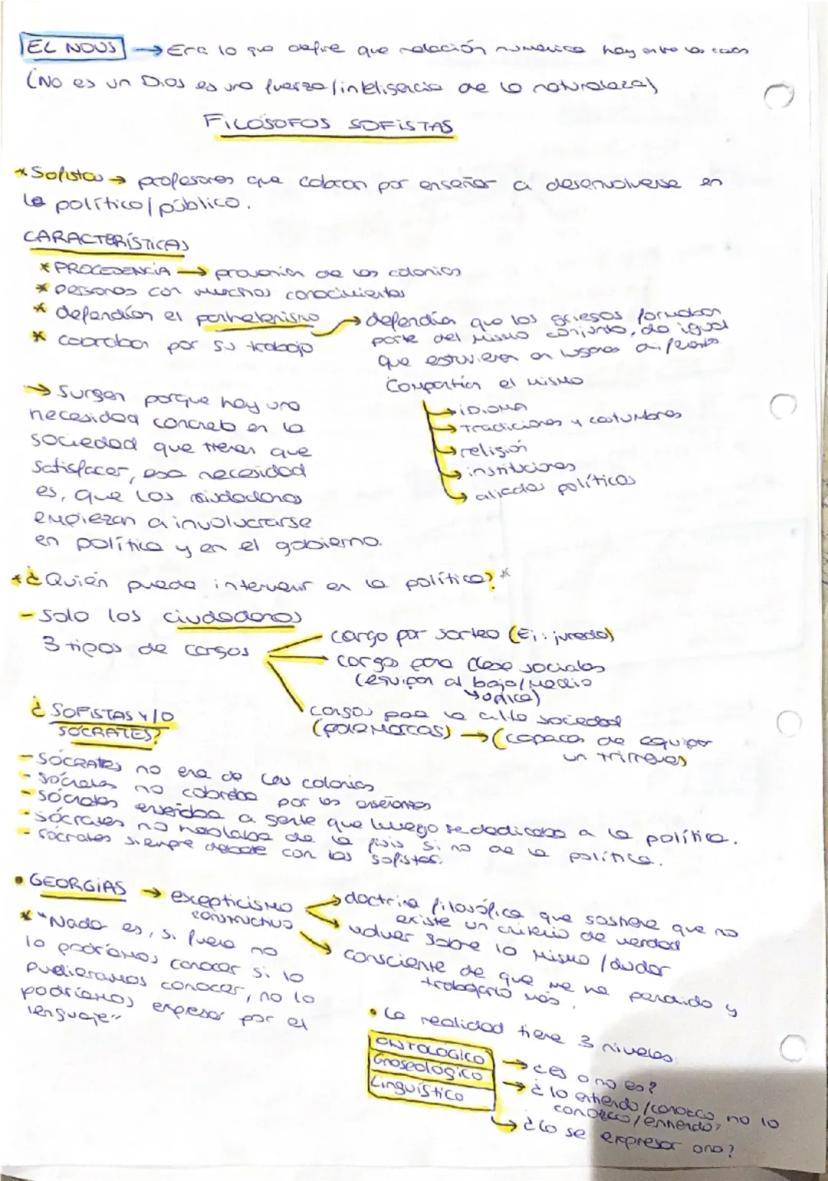 EL NOUS → Era lo que define que relación numérica hay entre las cosas
(No es un Dios es una fuerza/inteligencia de la naturaleza)
FILÓSOFOS SOFISTAS
* Sofistas → profesores que cobran por enseñar a desenvolverse en
lo político/público.
CARACTERÍSTICAS
* PROCEDENCIA → provenían de las colonias
* personas con muchos conocimientos
* defendían el panhelenismo → defendían que los griegos formaban
parte del mismo conjunto, da igual
que estuvieran en lugares diferentes
* cobraban por su trabajo
Compartían el mismo
→ IDIOMA
→ tradiciones y costumbres
→ religión
→ instituciones
→ aliados políticos
→ Surgen porque hay una
necesidad concreta en la
sociedad que tienen que
satisfacer, esa necesidad
es, que los ciudadanos
empiezan a involucrarse
en política y en el gobierno.
* ¿Quién puede intervenir en la política? *
- Solo los ciudadanos
3 tipos de cargos
cargo por sorteo (Ej: jurado)
cargo para clase sociales
(equipan al bajo/medio
cargos para la alta sociedad
(polemarcas) → (capaces de equipar
un trirremes)
¿SOFISTAS Y/O
SÓCRATES?
- SÓCRATES no era de las colonias
- Sócrates no cobraba por las enseñanzas
- Sócrates enseñaba a gente que luego se dedicaba a la política.
- Sócrates no hablaba de la fisis si no de la política.
- Sócrates siempre debate con los sofistas.
• GEORGIAS → exepticismo
constructivo
→ doctrina filosófica que sostiene que no
existe un criterio de verdad
→ volver sobre lo mismo/dudar
→ consciente de que me he perdido y
trabajarlo más.
* "Nada es, si fuera no
lo podríamos conocer si lo
pudieramos conocer, no lo
podríamos expresar por el
lenguaje"
• La realidad tiene 3 niveles
Ontológico → ¿es o no es?
Gnoseológico → ¿lo entiendo/conozco no lo
conozco/entiendo?
Linguístico → ¿lo se expresar o no?